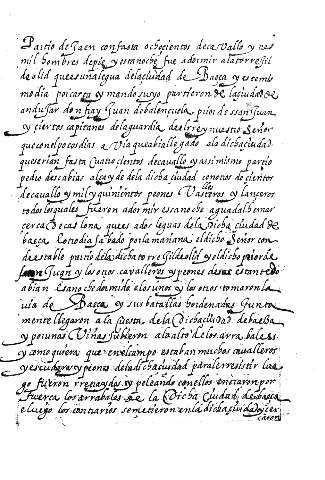 Partio de Jaen con fasta ochocientos de cavallo y tres
mil hombres de pie y esta noche fue a dormir a la torre gil
de olid que es una legua de la ciudad de Baeça y este mis
mo dia por carta y mando suyo partieron de la ciudad de
andujar don fray Juan de balençuela prior de ssan Juan
y ciertos capitanes de la guardia del rrey nuestro Señor
que con el pocos dias avia que abia llegado a la dicha ciudad
que serian fasta cuatrocientos de cavallo y assimismo partio
pedro de escabias alcayde de la dicha ciudad con otos de cientos
de cavallo y mil y quinientos peones Vallesteros y lanceros
todos los quales fueron a dormir essa noche a guadalbenes
cerca de cas lona, que es a dos leguas de la dicha ciudad de
baeça Otro dia sabado por la mañana el dicho Señor con
destable partio de la dicha torre Gil de olid y el dicho prior de
san Juan y los otros cavalleros y peones desde es tan do
abian esa noche dormido e los unos y los otros tomaron la
via de Baeça y sus batallas hordenadas junta
mente llegaron a la cuesta de la Dicha ciudad de baeba
y por unas Viñas subieron a lo alto de los arrabales
y como quiera que en el campo estaban muchos cavalleros
y escuderos y peones de la dicha ciudad para le rresistir lue
go fueron rretraydos y peleando con ellos entraron por
fuerça los arrabales de la Dicha Ciudad de baeça
e luego los contrarios se metieron en la dicha ciudad y cer
caron